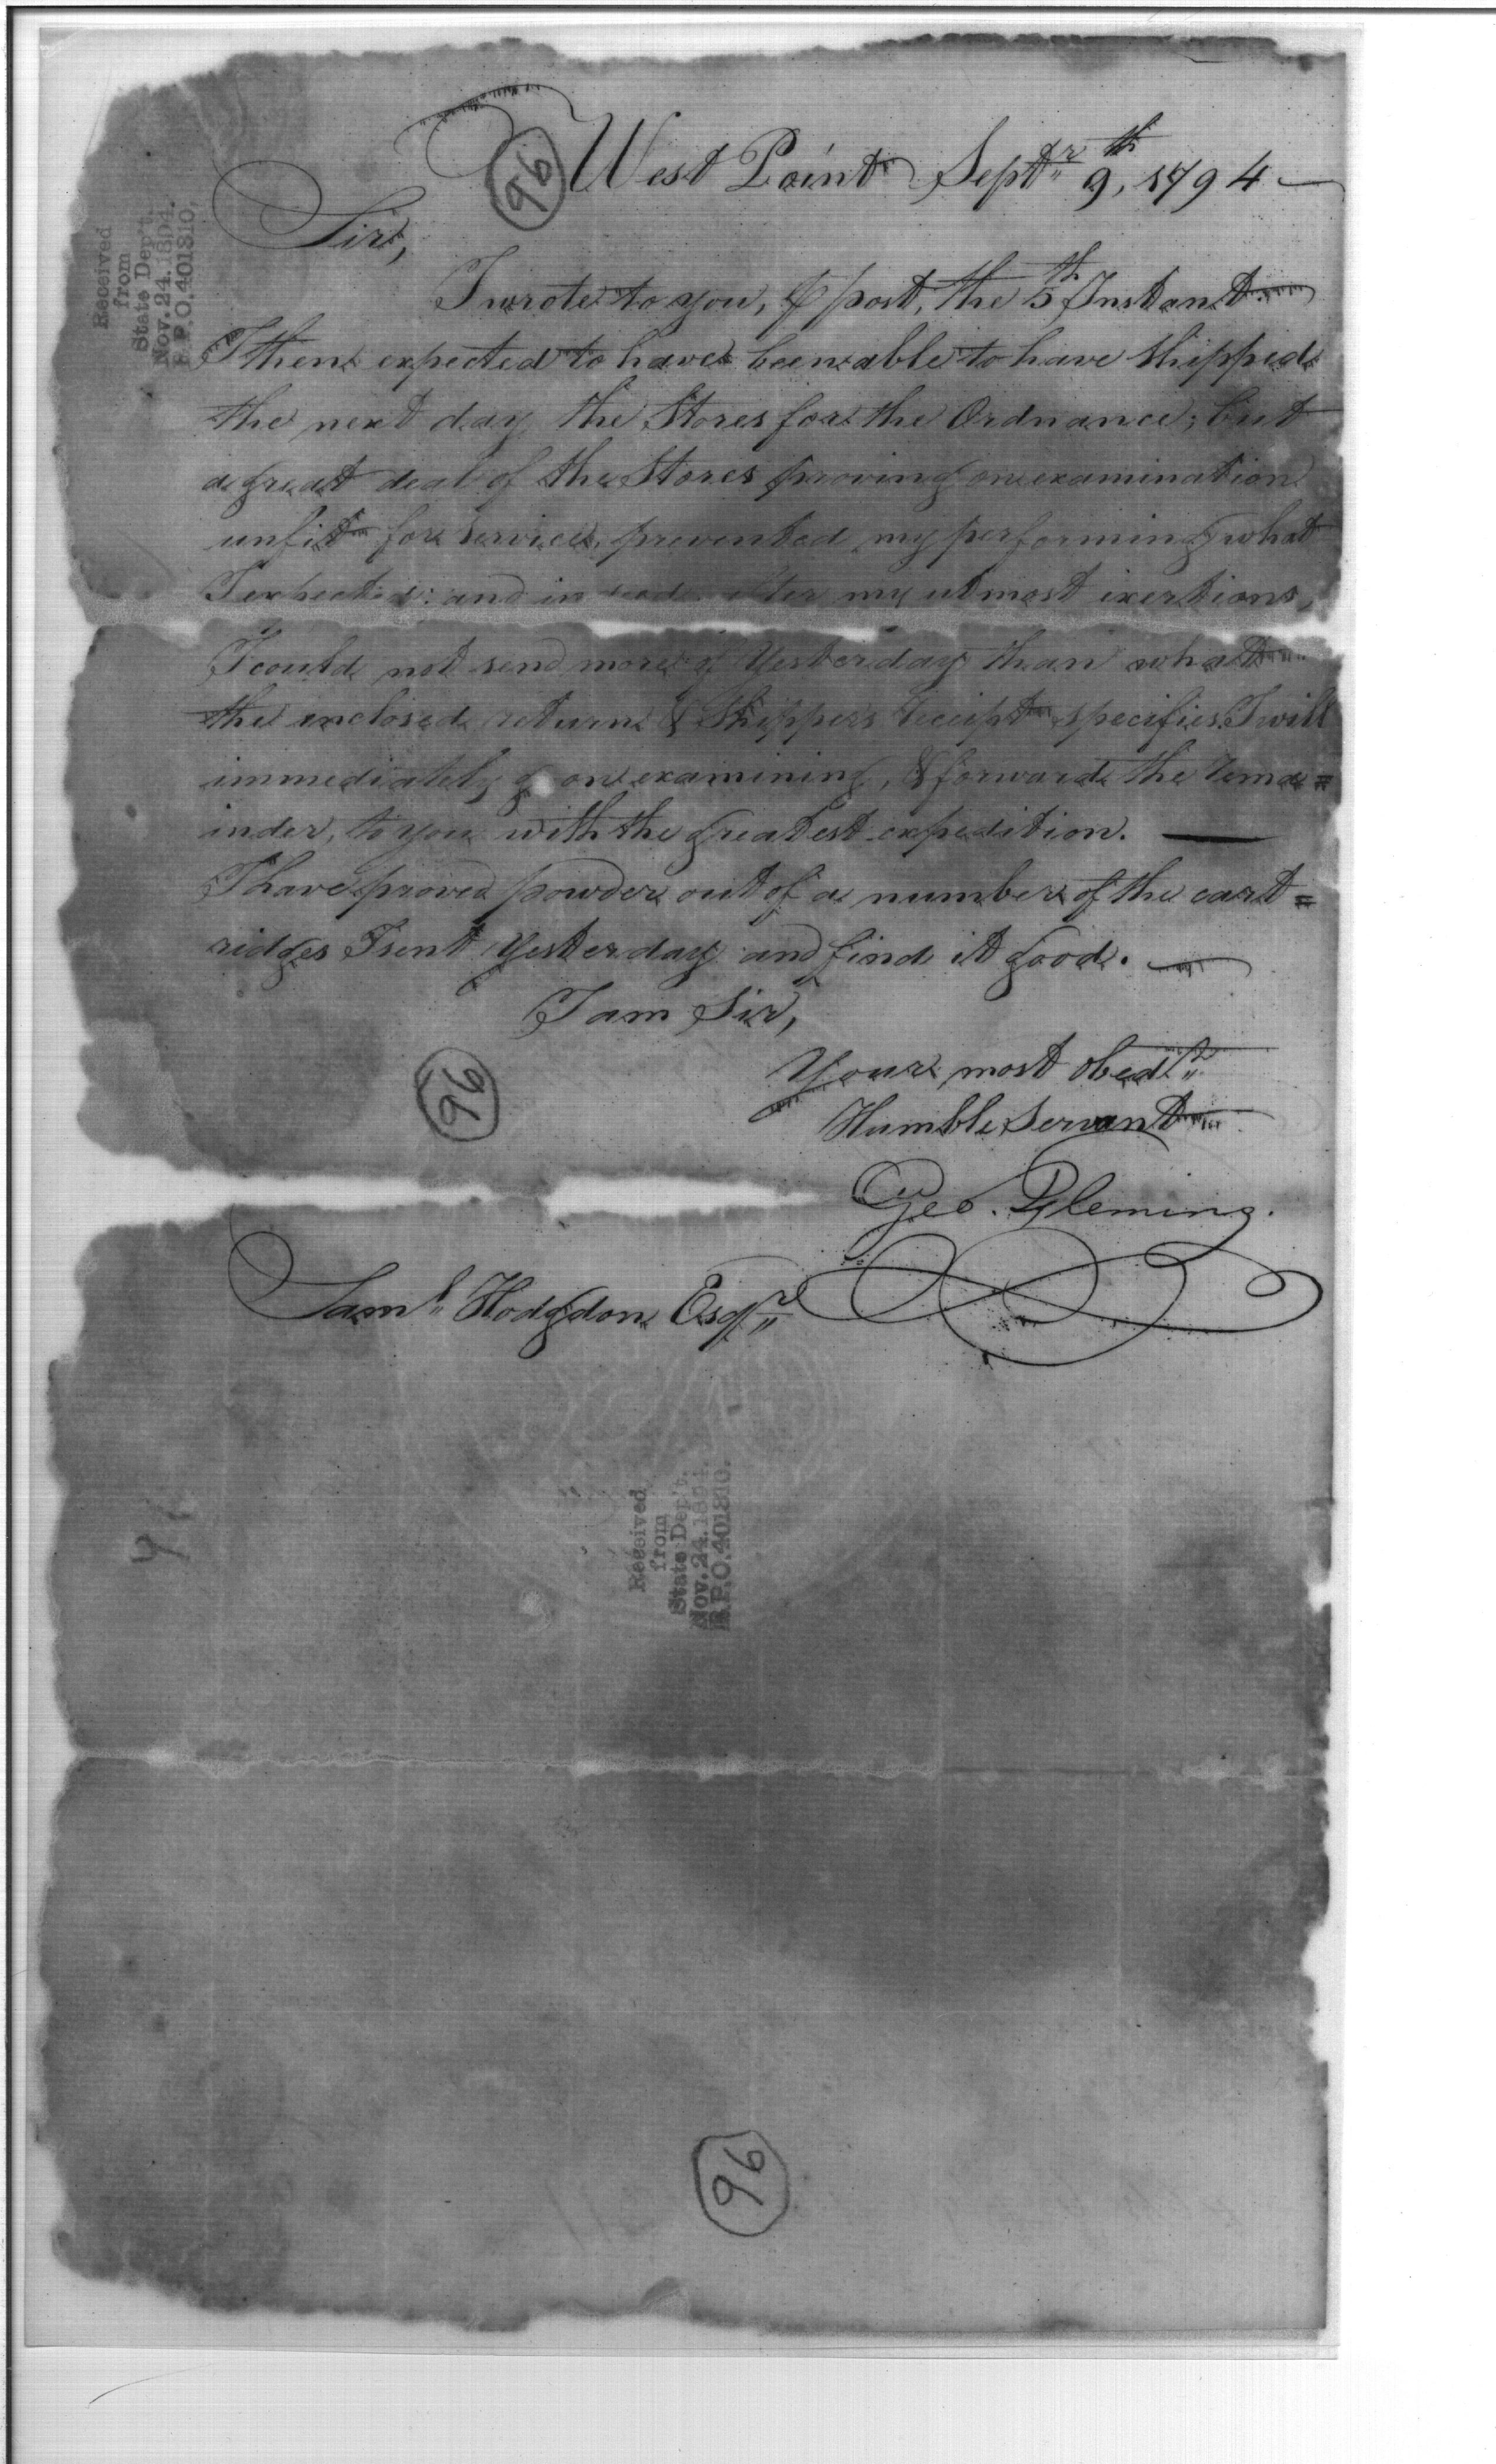 96
West Point Septr. 9th, 1794
Sir,
I wrote to you, ⅌ post, the 5th Instant
I then expected to have been able to have shipped
the next day the Stores for the Ordnance; but
a great deal of the Stores proving on examination
unfit for service, prevented my performing what
I expected: and indeed after my utmost exertions,
I could not send more of Yesterday than what
the enclosed return & Shippers receipt specifies. I will
immediately go on examining, & forward the rema=
inder, to you with the greatest expedition.
I have proved powder out of a number of the cart=
ridges I sent Yesterday and find it good.
I am Sir,
Your most obedt.
Humble Servant
Geo. Fleming.
Saml. Hodgdon Esqr.
96
Received
from
State Dep't.
Nov. 24. 1894.
R.P.O. 401310.
Received
from
State Dep't.
Nov. 24. 1894.
R.P.O. 401310.
96